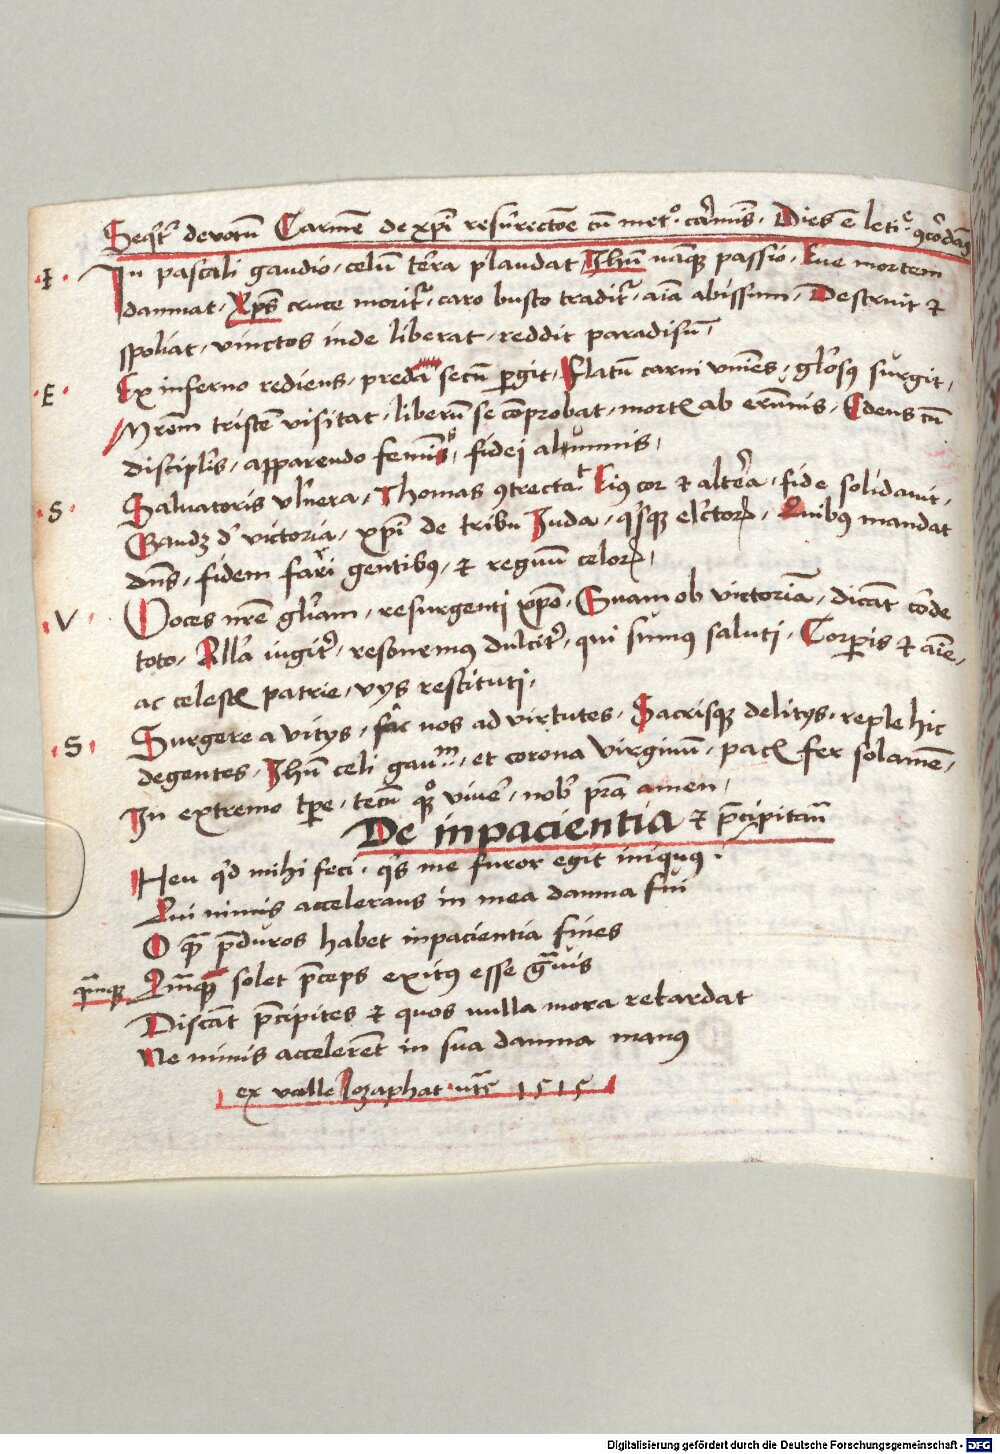 Seqt̄ᷣ devotū Carmē de xp̄i resurrectōe cū metº. cāminis. Dies ē letie 9cōdās
I. In pascali gaudio, celū terra plaudat, Ihūs nāqꝫ passio, sue mortem
damnat, Xp̄s cruce moritᷣ, caro busto traditᷣ, aīa abissum, Destruit et
spoliat, vinctos inde liberat, reddit paradisū,
E. Ex inferno rediens, predā secū pergit, Flatū carni vniēs, glōsꝰ surgit,
Mrēm tristē visitat, liberū se cōprobat, mortꝭ ab erūnis, Edens cū
disciplīs, apparendo feminis, fidei alumnis,
S. Salvatoris vlnera, Thomas 9trectat Eiꝰ cor et altera, fide solidauit,
Gaudꝫ d' victoria, xp̄i de tribu Iuda, qⁱsqꝫ elctoꝝ, Quibꝰ mandat
dn̄s, fidem fari gentibꝰ, et regnū celoꝝ,
V. Voces nrē glīam, resurgenti xp̄o, Suam ob victoriā, dicāt corde
toto, Alla iugitʼ, resonemꝰ dulcitʼ, qui sumꝰ saluti, Corpis et aīe,
ac celestꝭ patrie, vijs restituti,
S. Surgere a vitijs, fac nos ad virtutes, Sacrisqꝫ delitijs, reple hic
degentes, Ihū celi gaum, et corona virginū, pacꝭ fer solamē,
In extremo tpe, tecū qꝫ viverʼ, nobʼ prā amen,
De inpacientia et p̄cipitan̄
Heu qd mihi feci, qⁱs me furor egit iniquꝰ.
Qui nimis accelerans in mea damna fui
O qᷓ p̄duros habet inpacientia fines
qᷓmqꝫ Quāqꝫ solet p̄ceps exitꝰ esse gᷓuis
Discāt p̄cipites et quos nulla mora retardat
Ne nimis accelerēt in sua damna manꝰ
ex valle Iozaphat vtͣ 1515
Digitalisierung gefördert durch die Deutsche Forschungsgemeinschaft - DFG